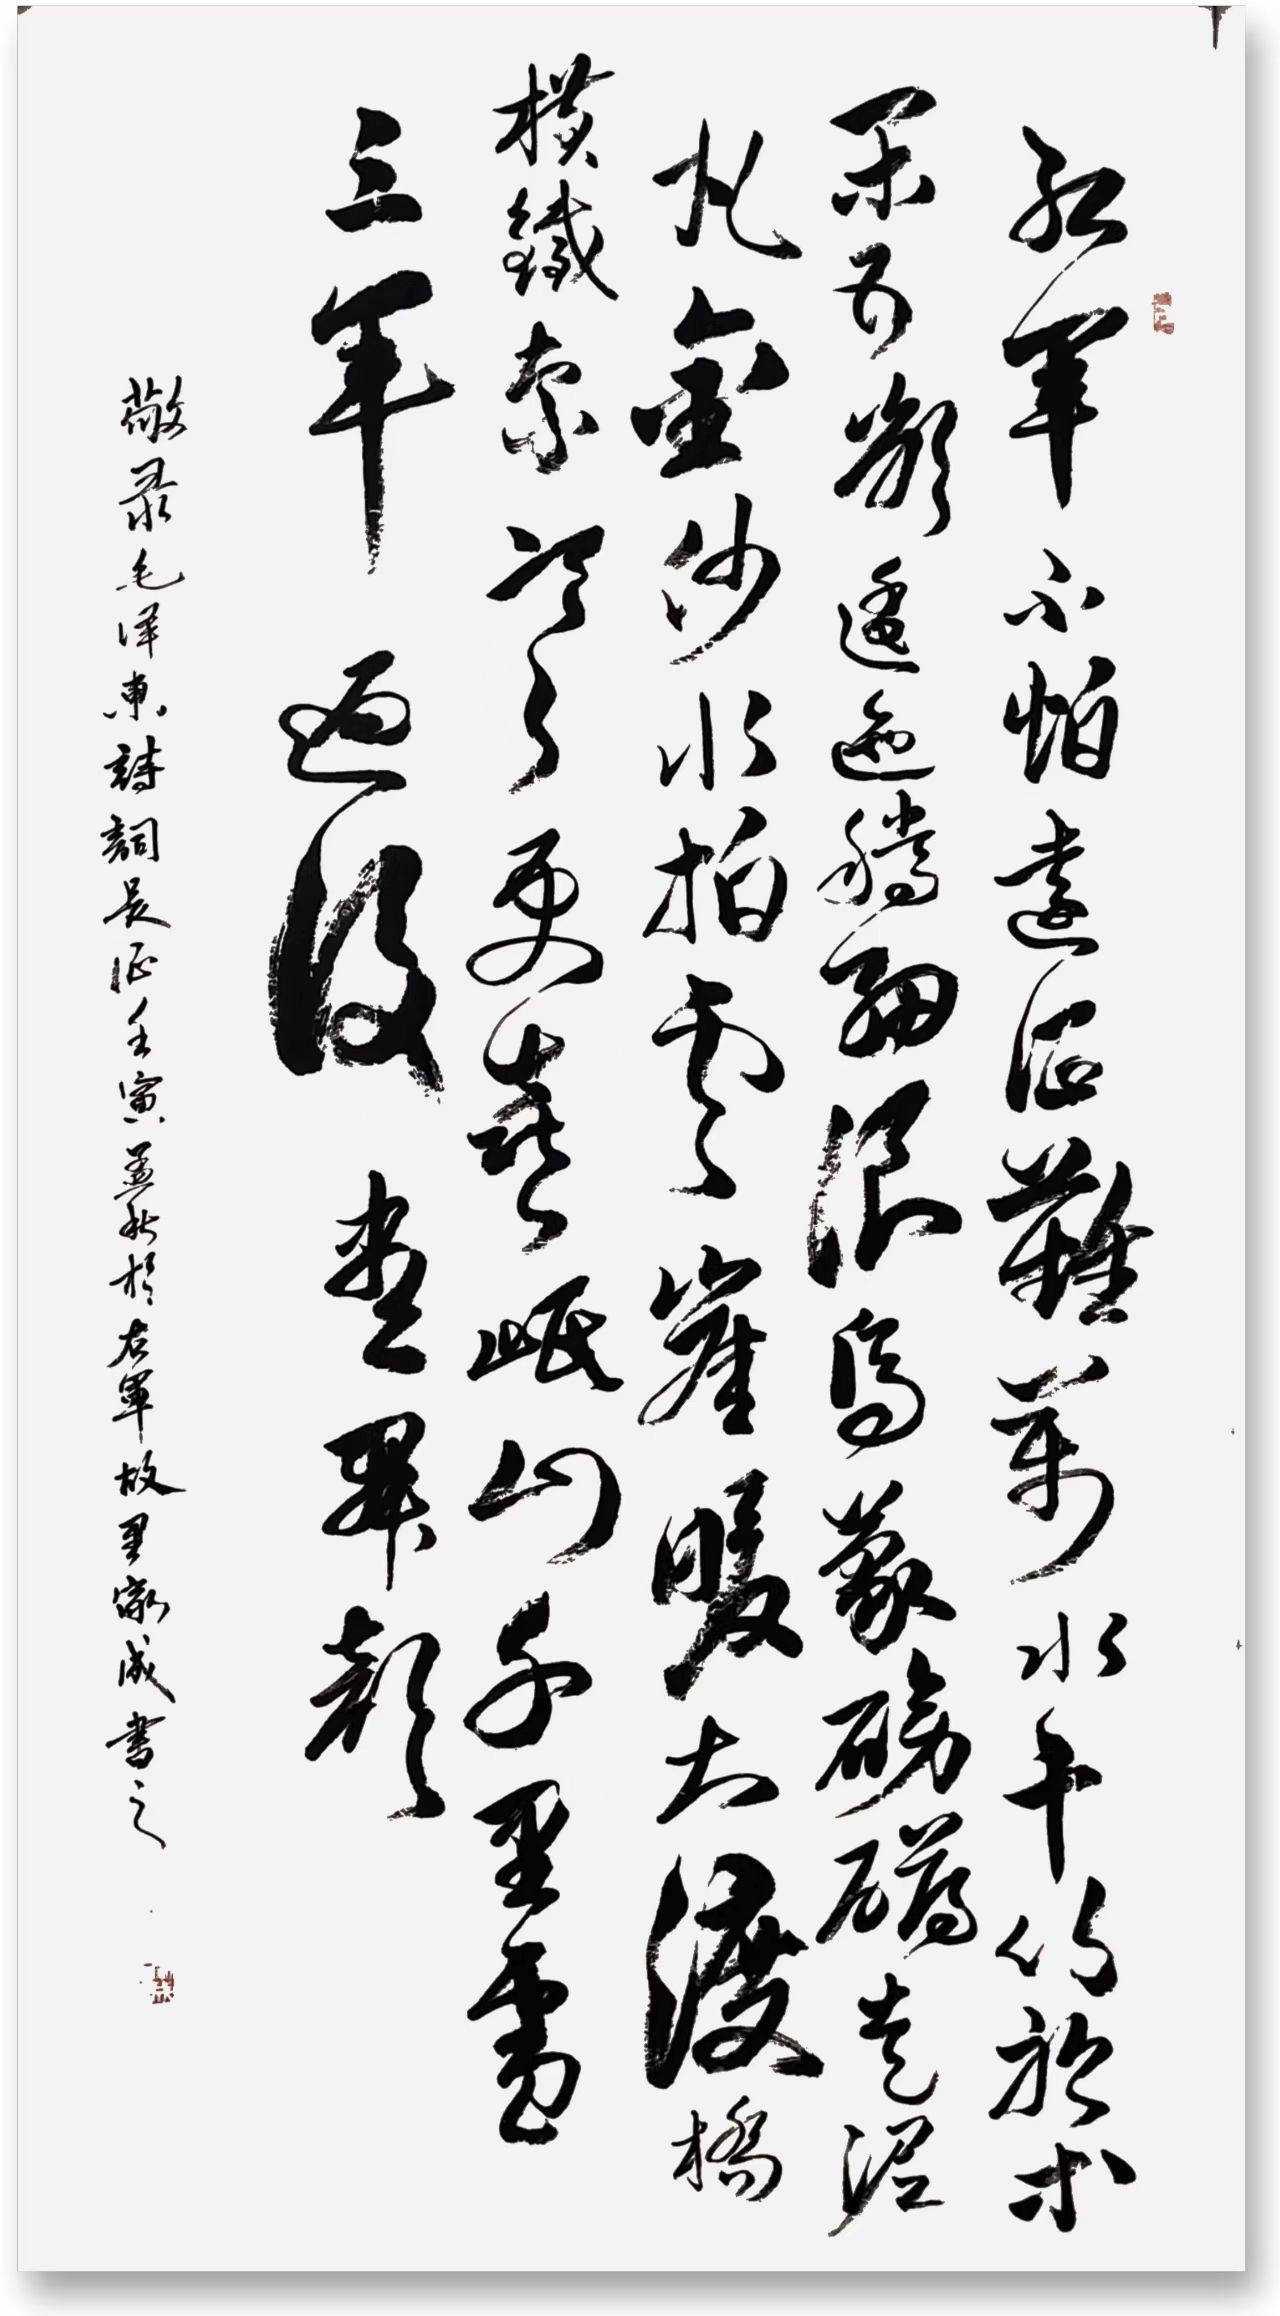 紅軍不怕遠征難萬水千山祗等
閑五嶺逶迤騰細浪烏蒙磅礴走泥
丸金沙水拍雲崖暖大渡橋
橫鐵索寒更喜岷山千里雪
三軍過後盡開顏
敬录毛泽東詩詞長征壬寅孟秋於右軍故里家成書之